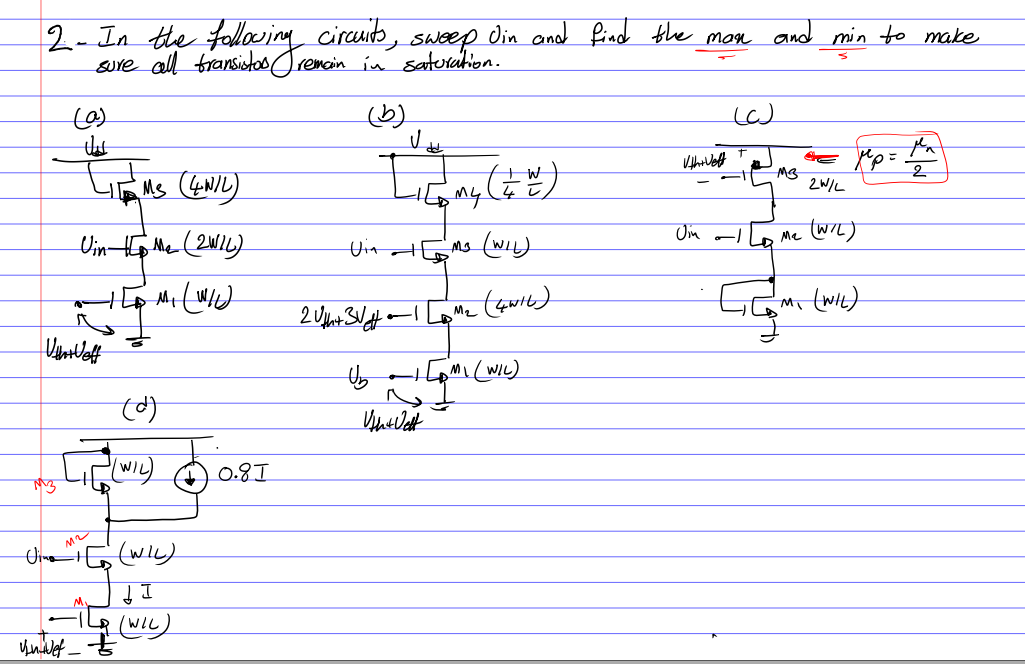 2- In the following circuits, sweep Vin and find the max and min to make
sure all transistors remain in saturation.
(a)
Vdd
M3 (4W/L)
Vin M2 (2W/L)
M1 (W/L)
Vth+Veff
(b)
Vdd
M4 (1/4 W/L)
Vin M3 (W/L)
2Vth+3Veff M2 (4W/L)
Vb M1 (W/L)
Vth+Veff
(c)
Vth+Veff + - M3 2W/L
μp = μn/2
Vin M2 (W/L)
M1 (W/L)
(d)
M3 (W/L) 0.8I
Vin M2 (W/L)
↓ I
M1 (W/L)
Vth+Veff + -